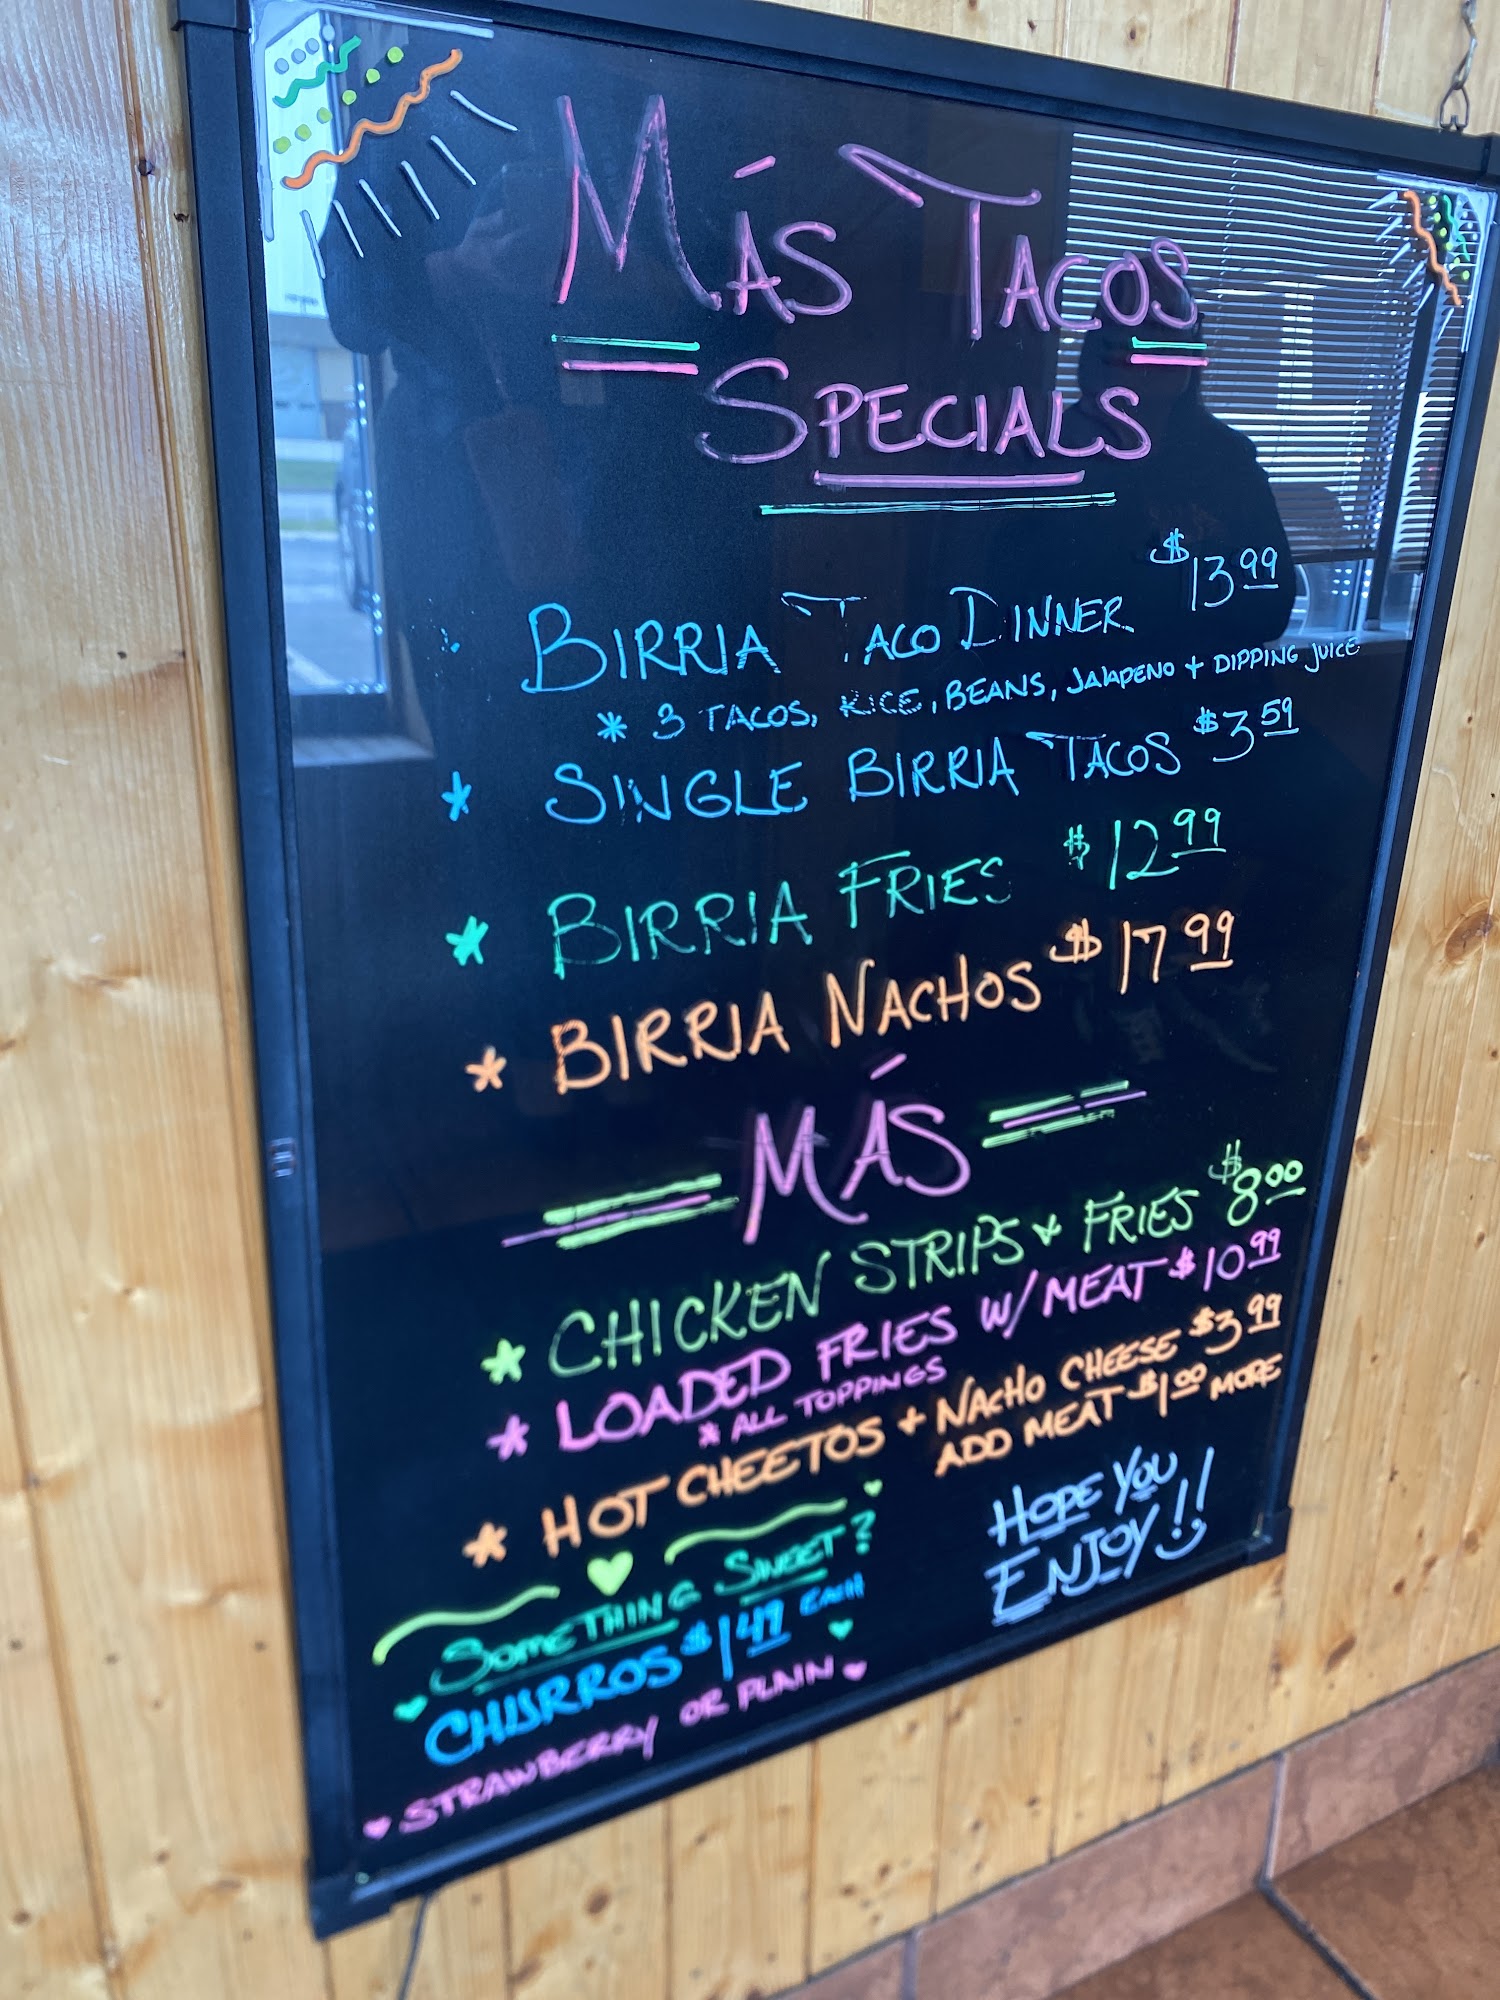 MÁS TACOS
SPECIALS
BIRRIA TACO DINNER $13.99
* 3 TACOS, RICE, BEANS, JALAPENO + DIPPING JUICE
* SINGLE BIRRIA TACOS $3.59
* BIRRIA FRIES $12.99
* BIRRIA NACHOS $17.99
MÁS
* CHICKEN STRIPS + FRIES $8.00
* LOADED FRIES W/ MEAT $10.99
* ALL TOPPINGS
* HOT CHEETOS + NACHO CHEESE $3.99
ADD MEAT $1.00 MORE
SOMETHING SWEET?
CHURROS $1.49 EACH
STRAWBERRY OR PLAIN
HOPE YOU
ENJOY!!